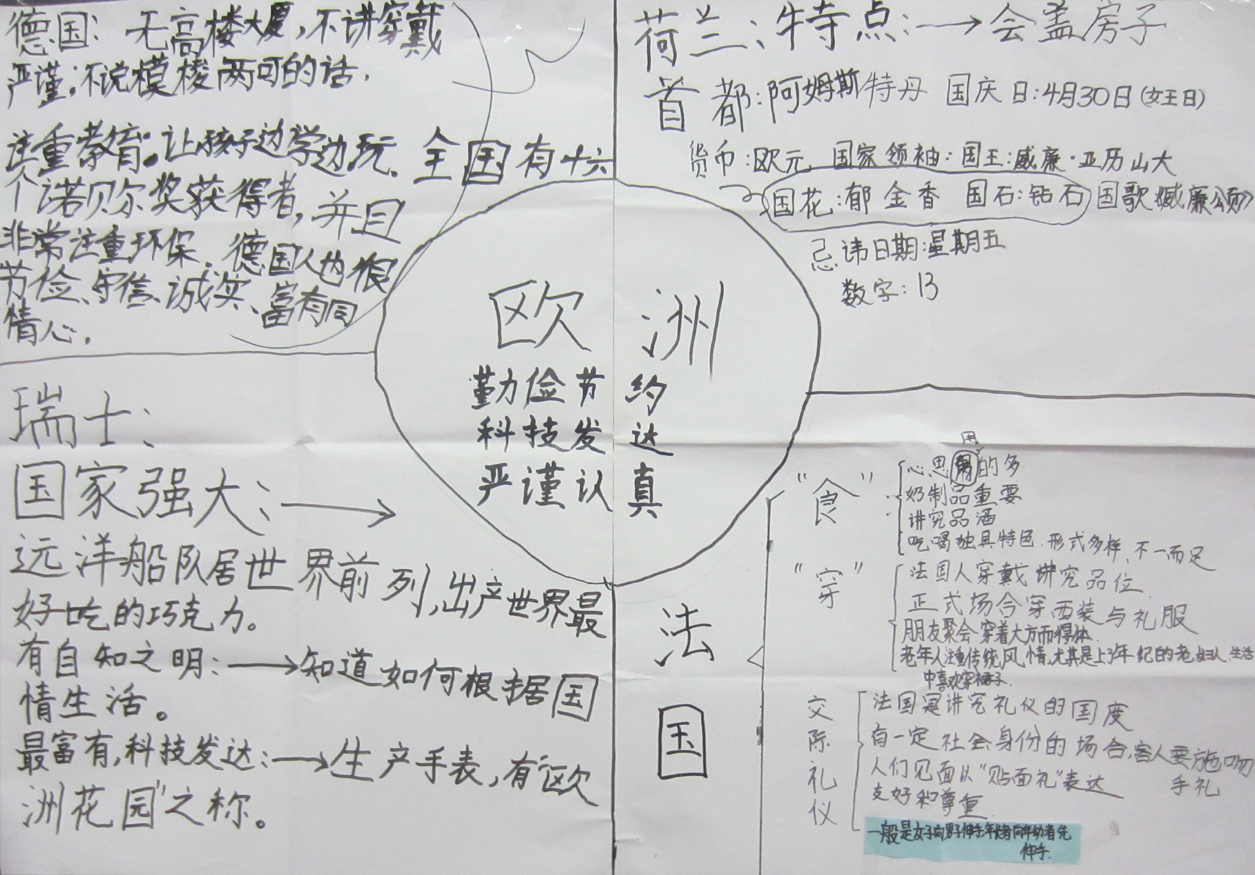 德国：无高楼大厦，不讲穿戴
严谨：不说模棱两可的话．
注重教育：让孩子边学边玩．全国有十六
个诺贝尔奖获得者，并且
非常注重环保．德国人也很
节俭、守信、诚实、富有同
情心．
荷兰：特点：→会盖房子
首都：阿姆斯特丹 国庆日：4月30日（女王日）
货币：欧元 国家领袖：国王：威廉·亚历山大
国花：郁金香 国石：钻石 国歌《威廉颂》
忌讳日期：星期五
数字：13
欧洲
勤俭节约
科技发达
严谨认真
瑞士：
国家强大：→
远洋船队居世界前列，出产世界最
好吃的巧克力。
有自知之明：→知道如何根据国
情生活。
最富有，科技发达：→生产手表，有“欧
洲花园”之称。
法国
“食”
心思用的多
奶制品重要
讲究品酒
吃喝独具特色．形式多样．不一而足
“穿”
法国人穿戴讲究品位．
正式场合穿西装与礼服
朋友聚会穿着大方而得体．
老年人注重传统风情．尤其是上了年纪的老妇人．生活
中喜欢穿裙子．
交际礼仪
法国是讲究礼仪的国度
有一定社会身份的场合，客人要施吻
手礼
人们见面以“贴面礼”表达
友好和尊重
一般是女子向男子伸手．年长者向年幼者先
伸手．